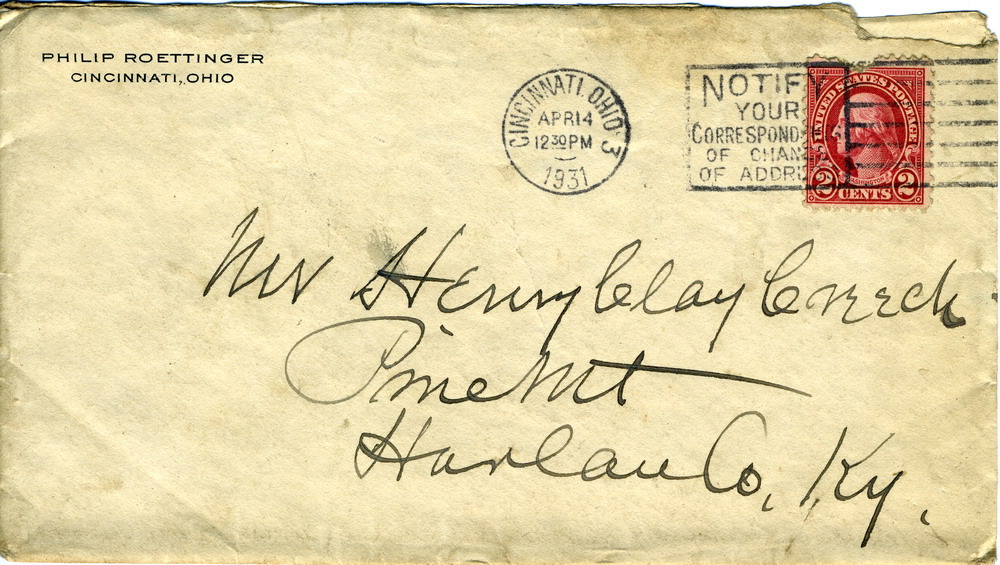 PHILIP ROETTINGER
CINCINNATI, OHIO
CINCINNATI, OHIO 3
APR 14
12 30 PM
1931
NOTIFY
YOUR
CORRESPOND
OF CHAN
OF ADDR
UNITED STATES POSTAGE
WASHINGTON
2 CENTS 2
Mr Henry Clay Creech
Pine Mt
Harlan Co, Ky.